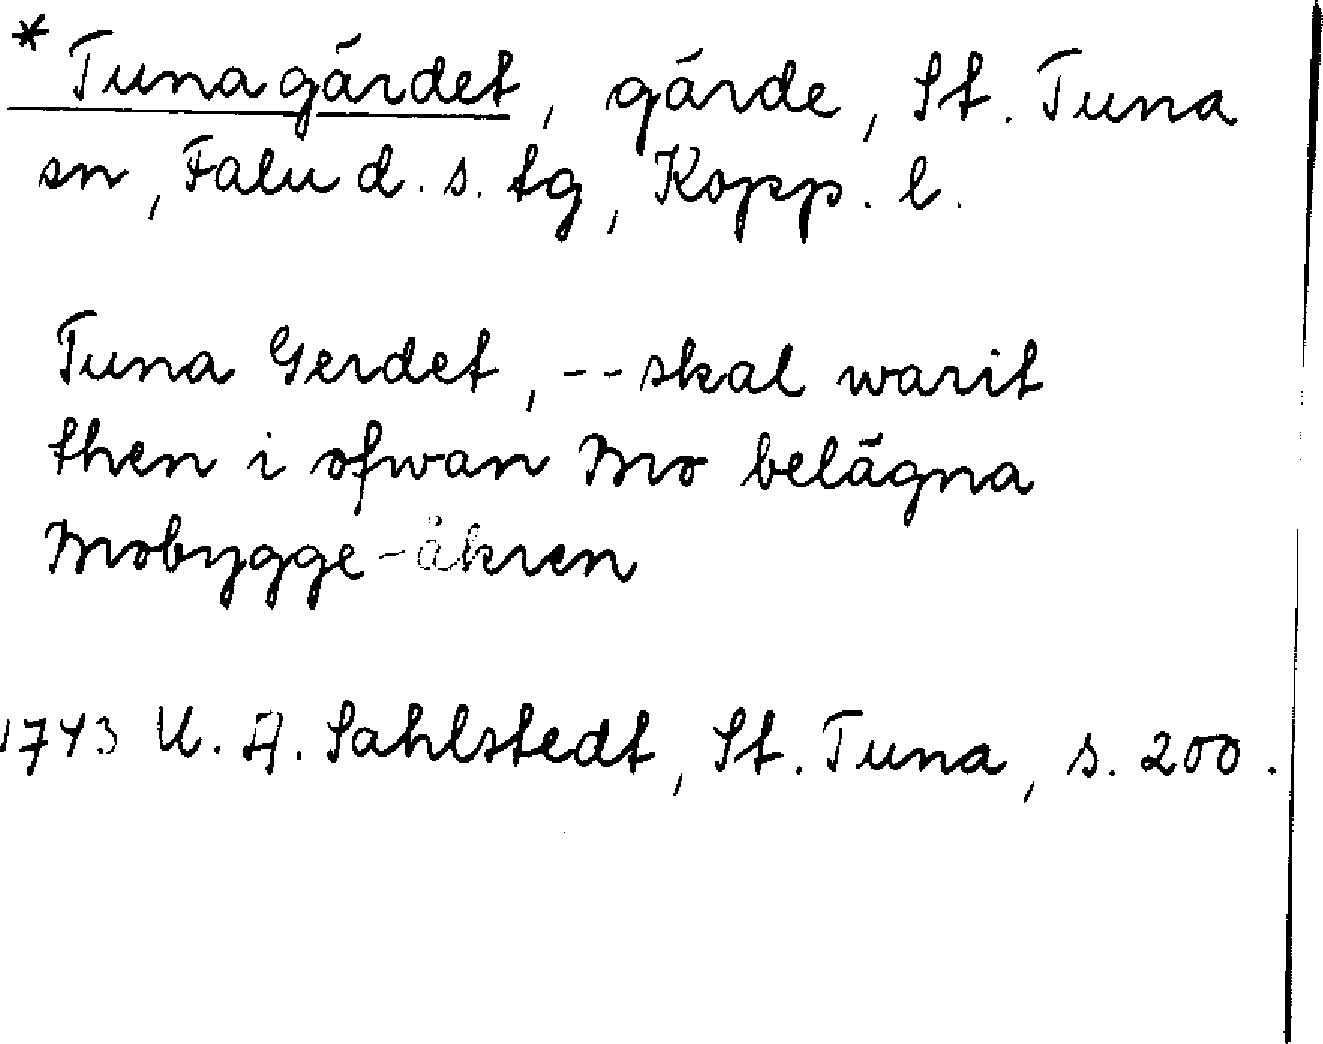 *Tunagärdet, gärde, St. Tuna
sn, Falu d. s. tg, Kopp. l.
Tuna Gerdet, -- skal warit
then i ofwan Mo belägna
Mobygge-åkren
1743 U. A. Sahlstedt, St. Tuna, s. 200.